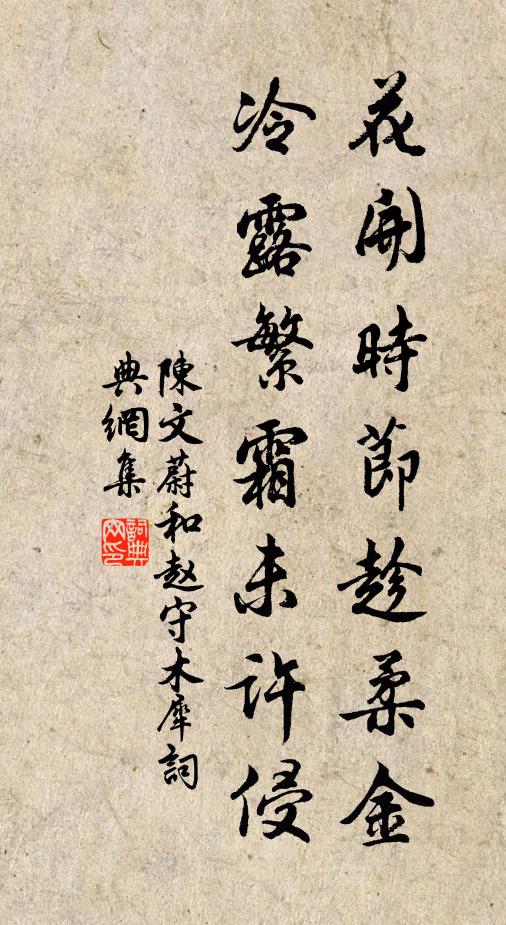 花開時節趁柔金
冷露繁霜未許侵
陳文蔚和赵守木犀詞
典網集
詞典网印